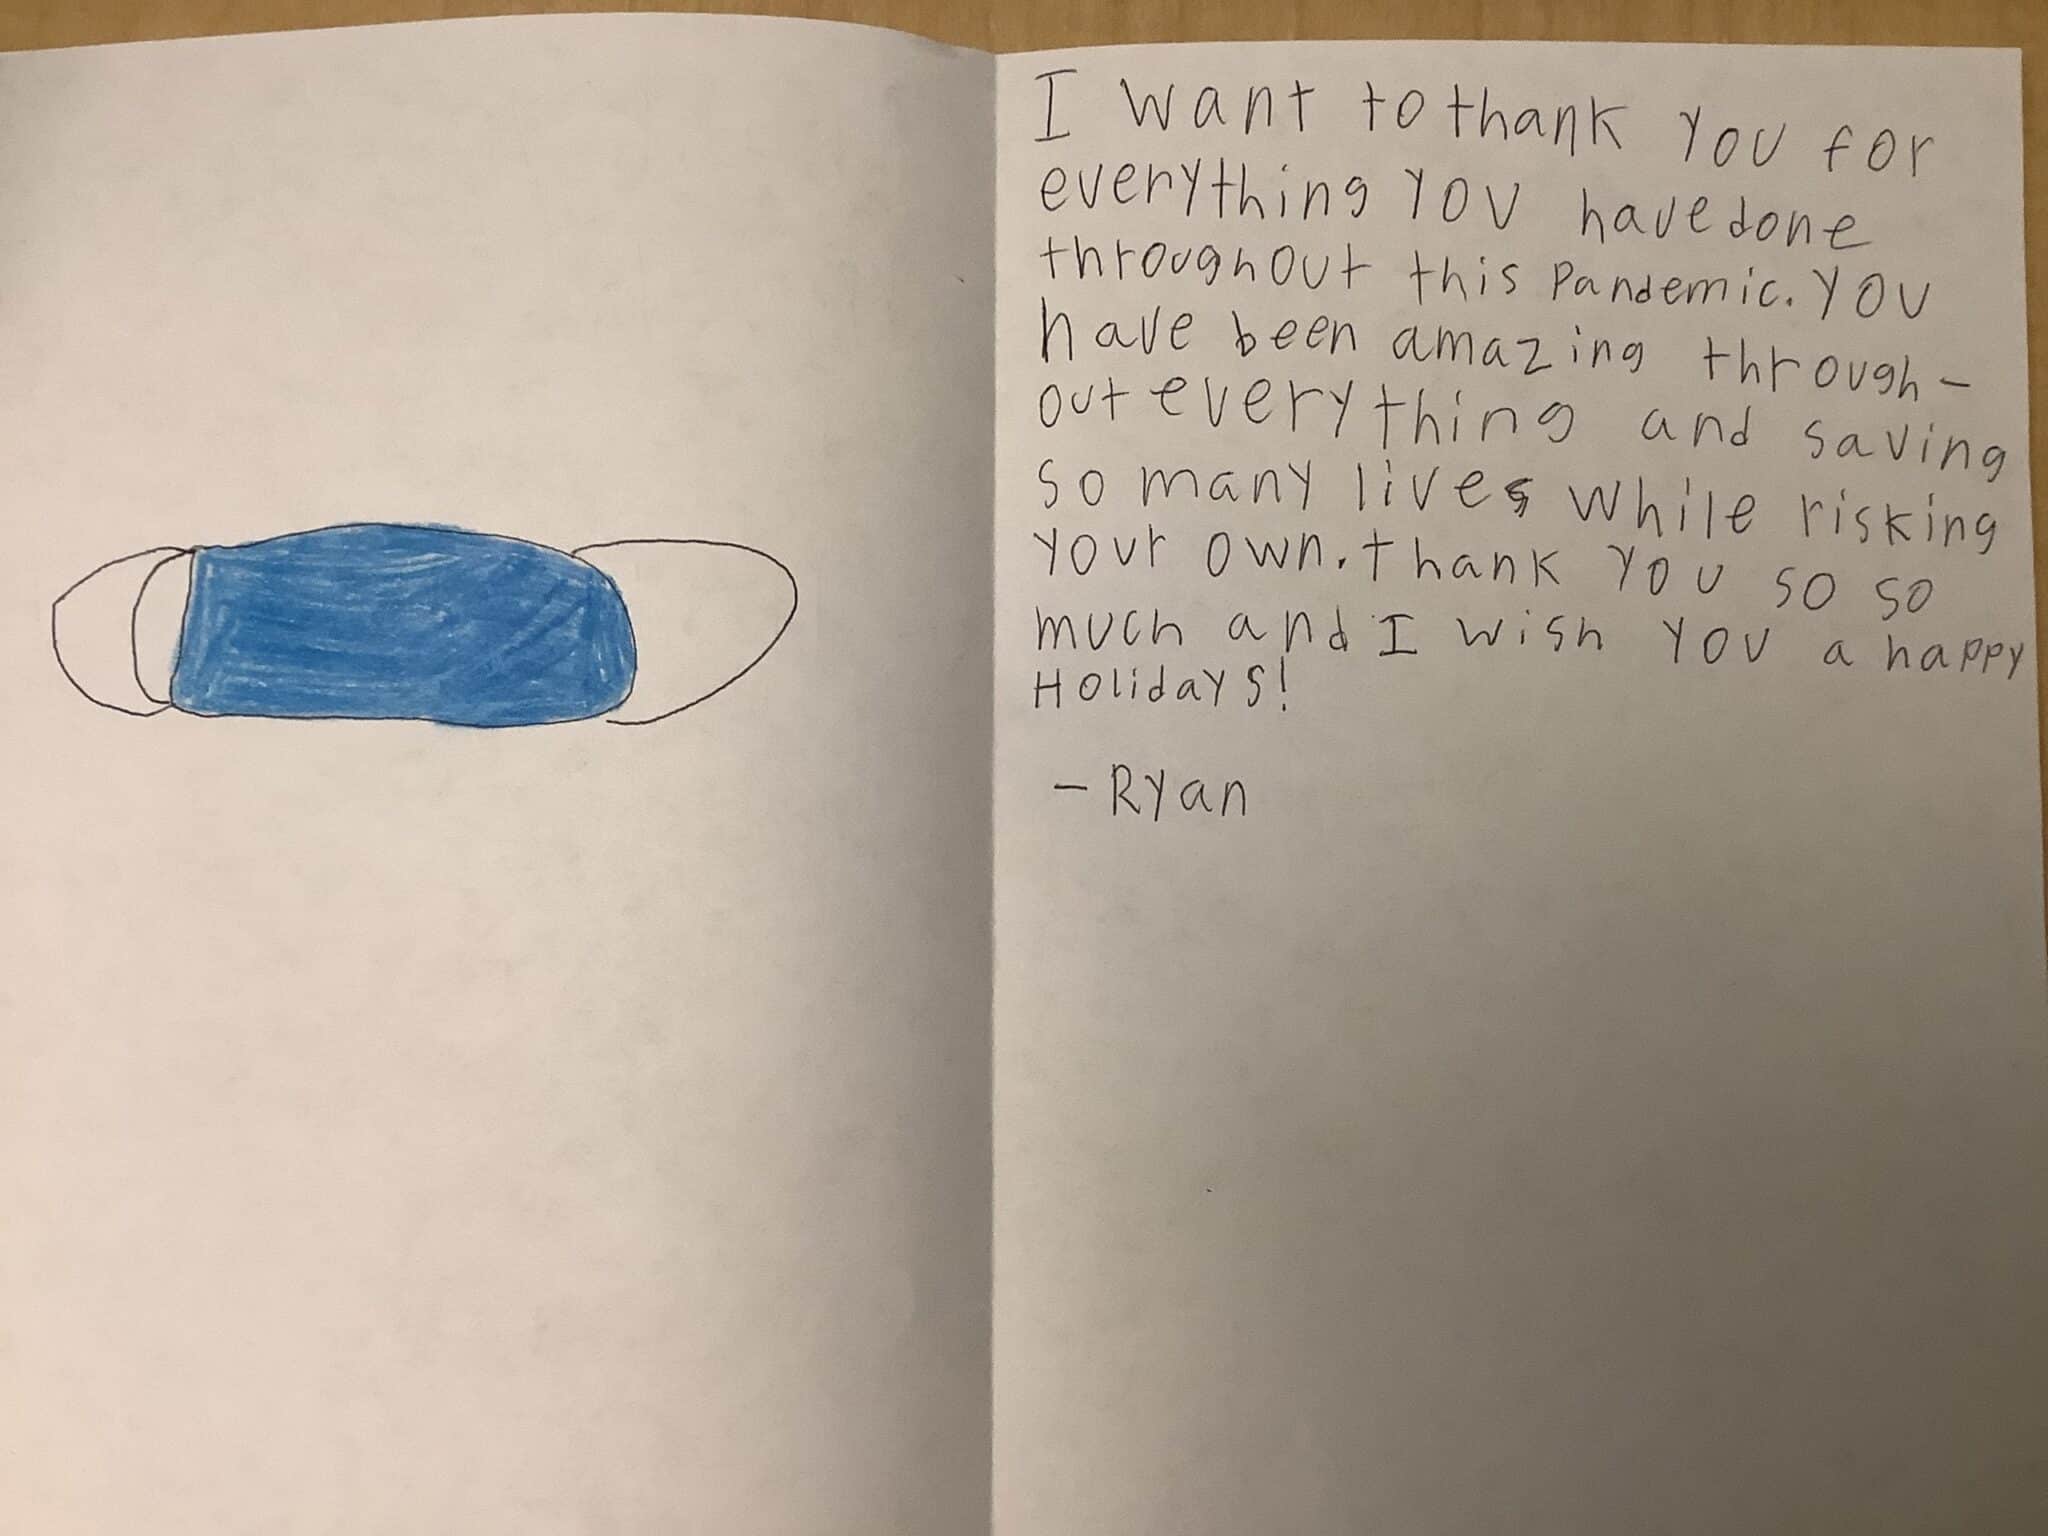 I want to thank you for
everything you have done
throughout this Pandemic. You
have been amazing through-
out everything and saving
so many lives while risking
your own. thank you so so
much and I wish you a happy
Holidays!
- Ryan